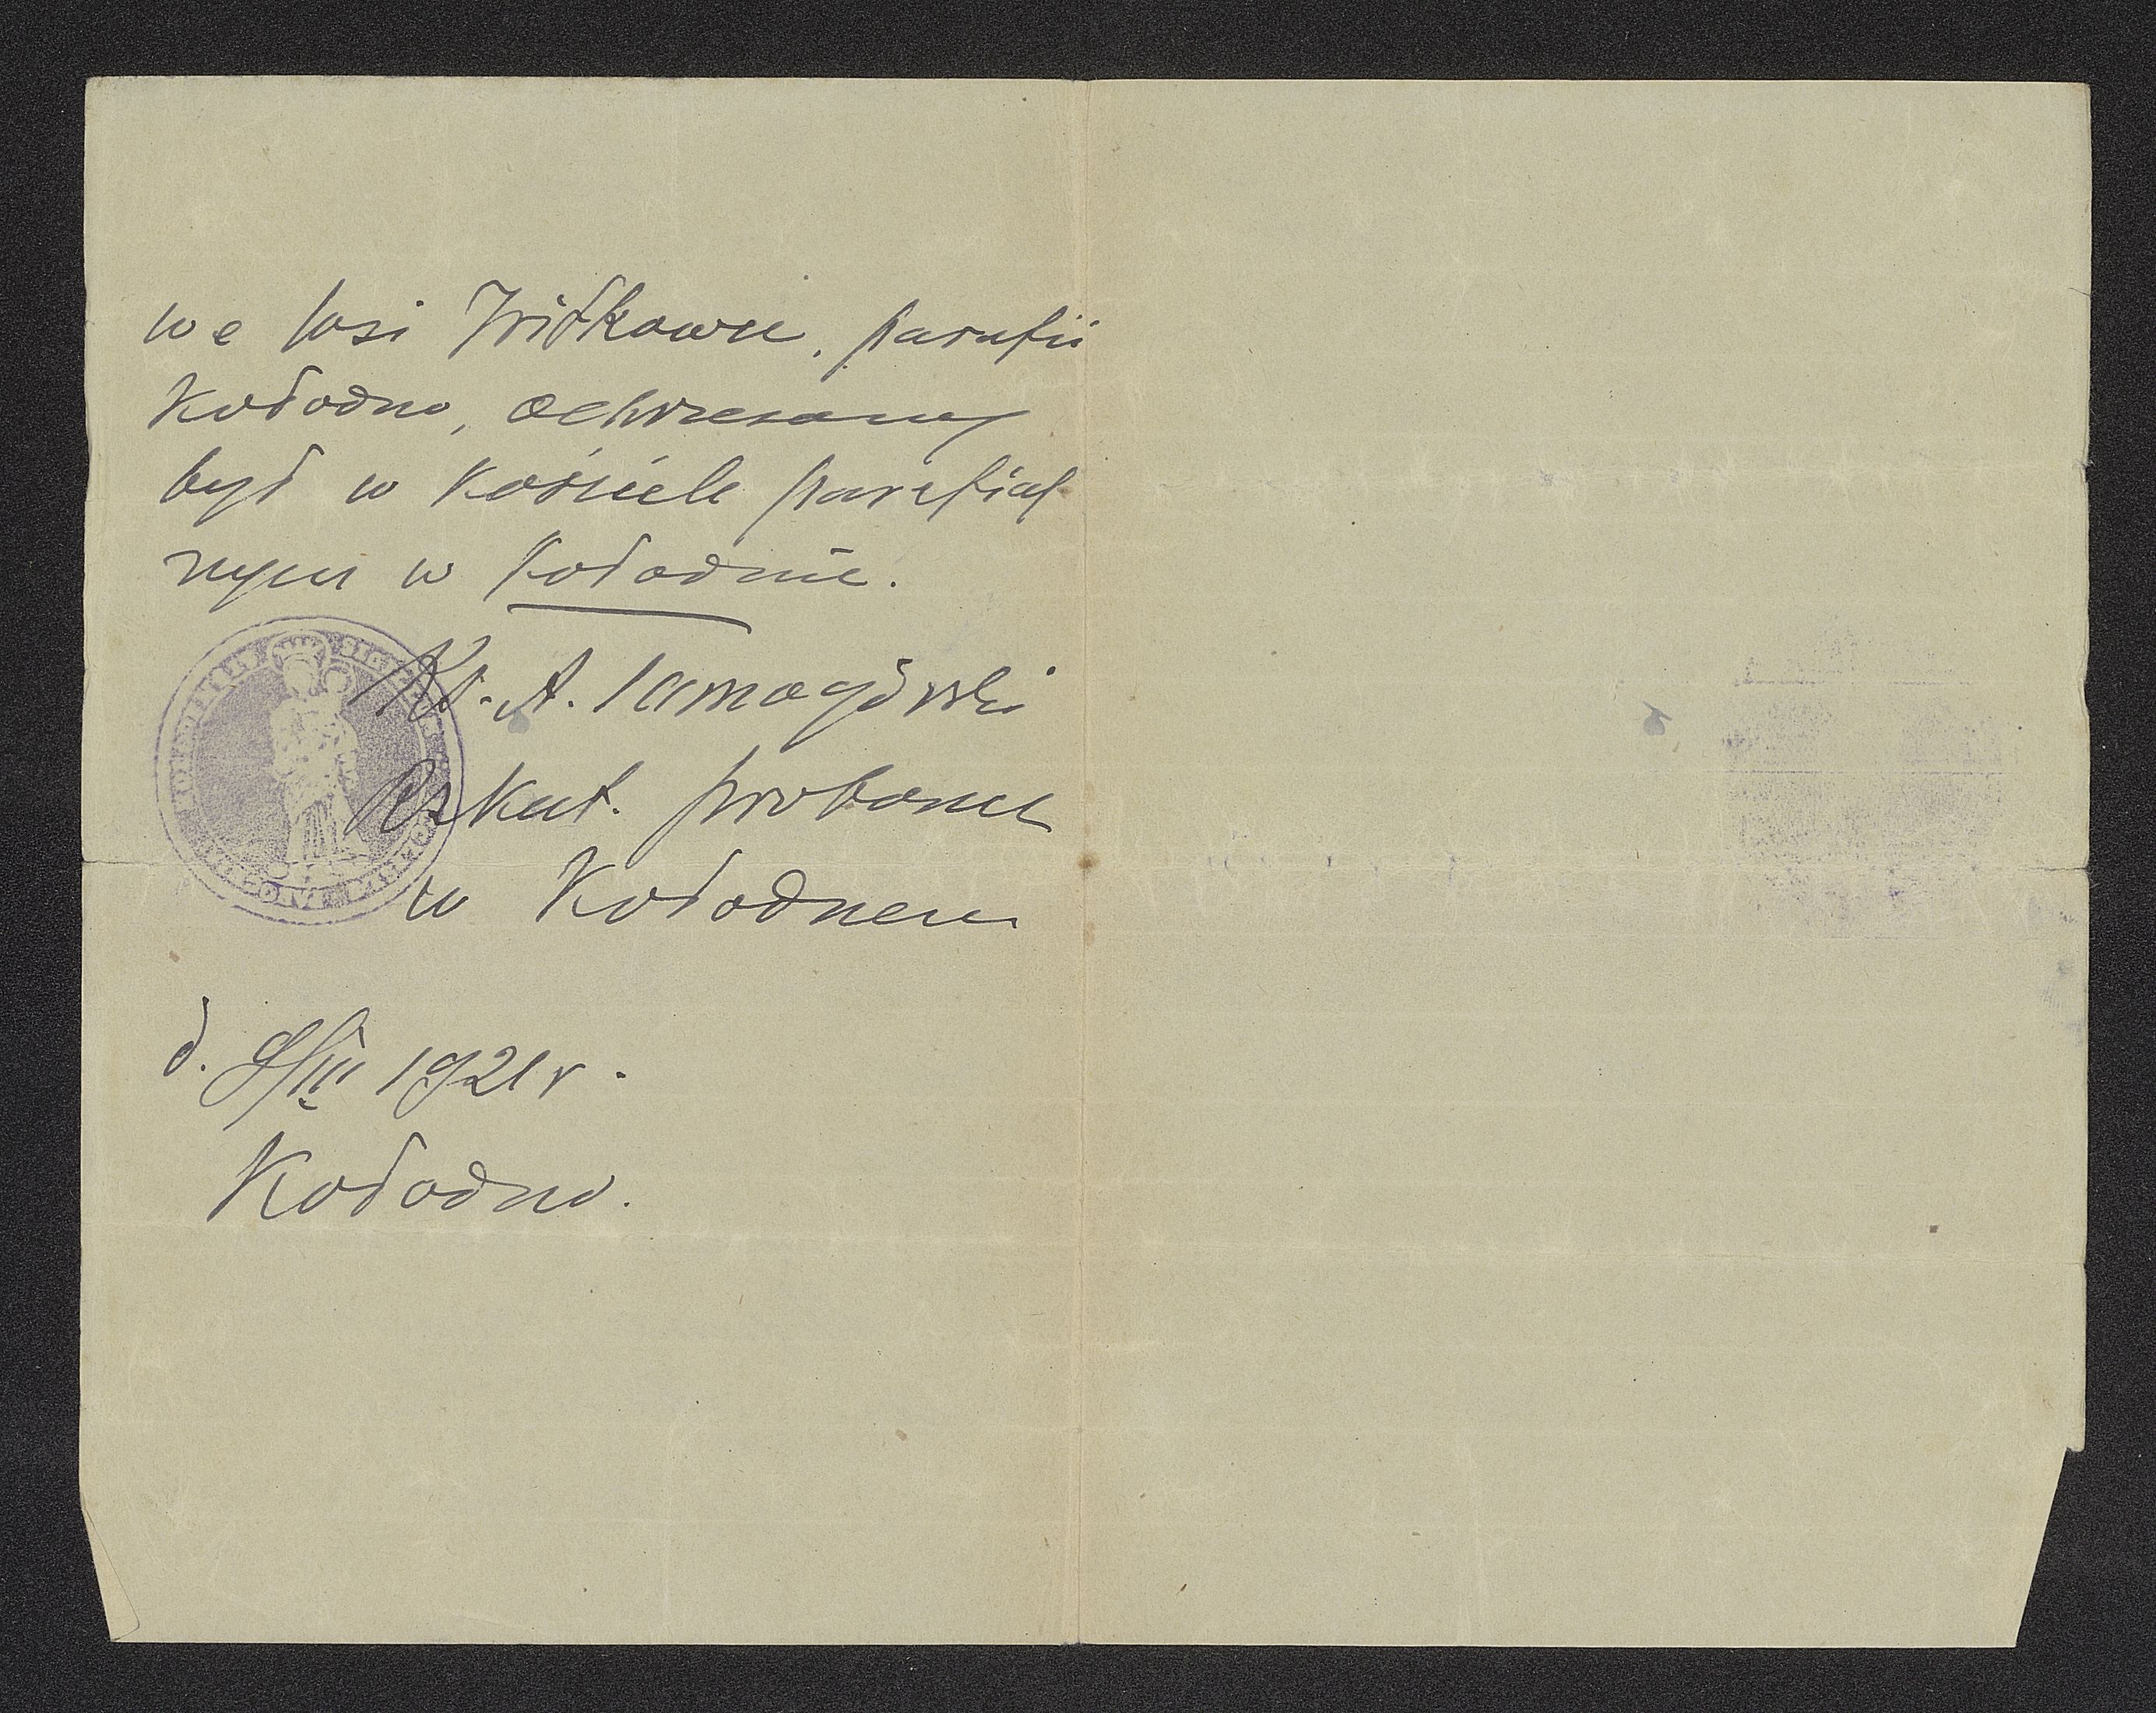 we wsi Iwiłkowie, parafii
Kołodno, ochrzczony
był w kościele parafial
nym w Kołodnie.
Ks. A. Jamogórski
Rz kat. proboszcz
w Kołodnem
d. 9/III 1921 r.
Kołodno.